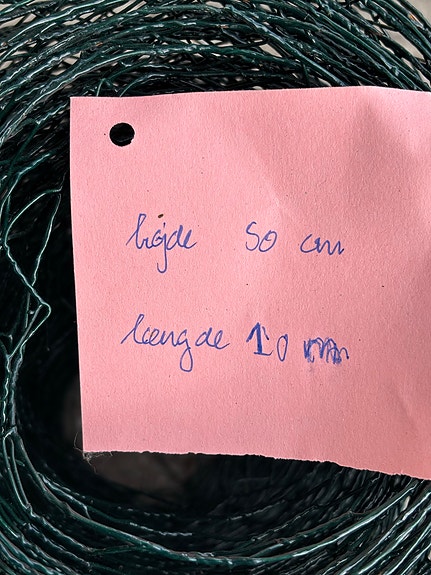 højde 50 cm
længde 10 m